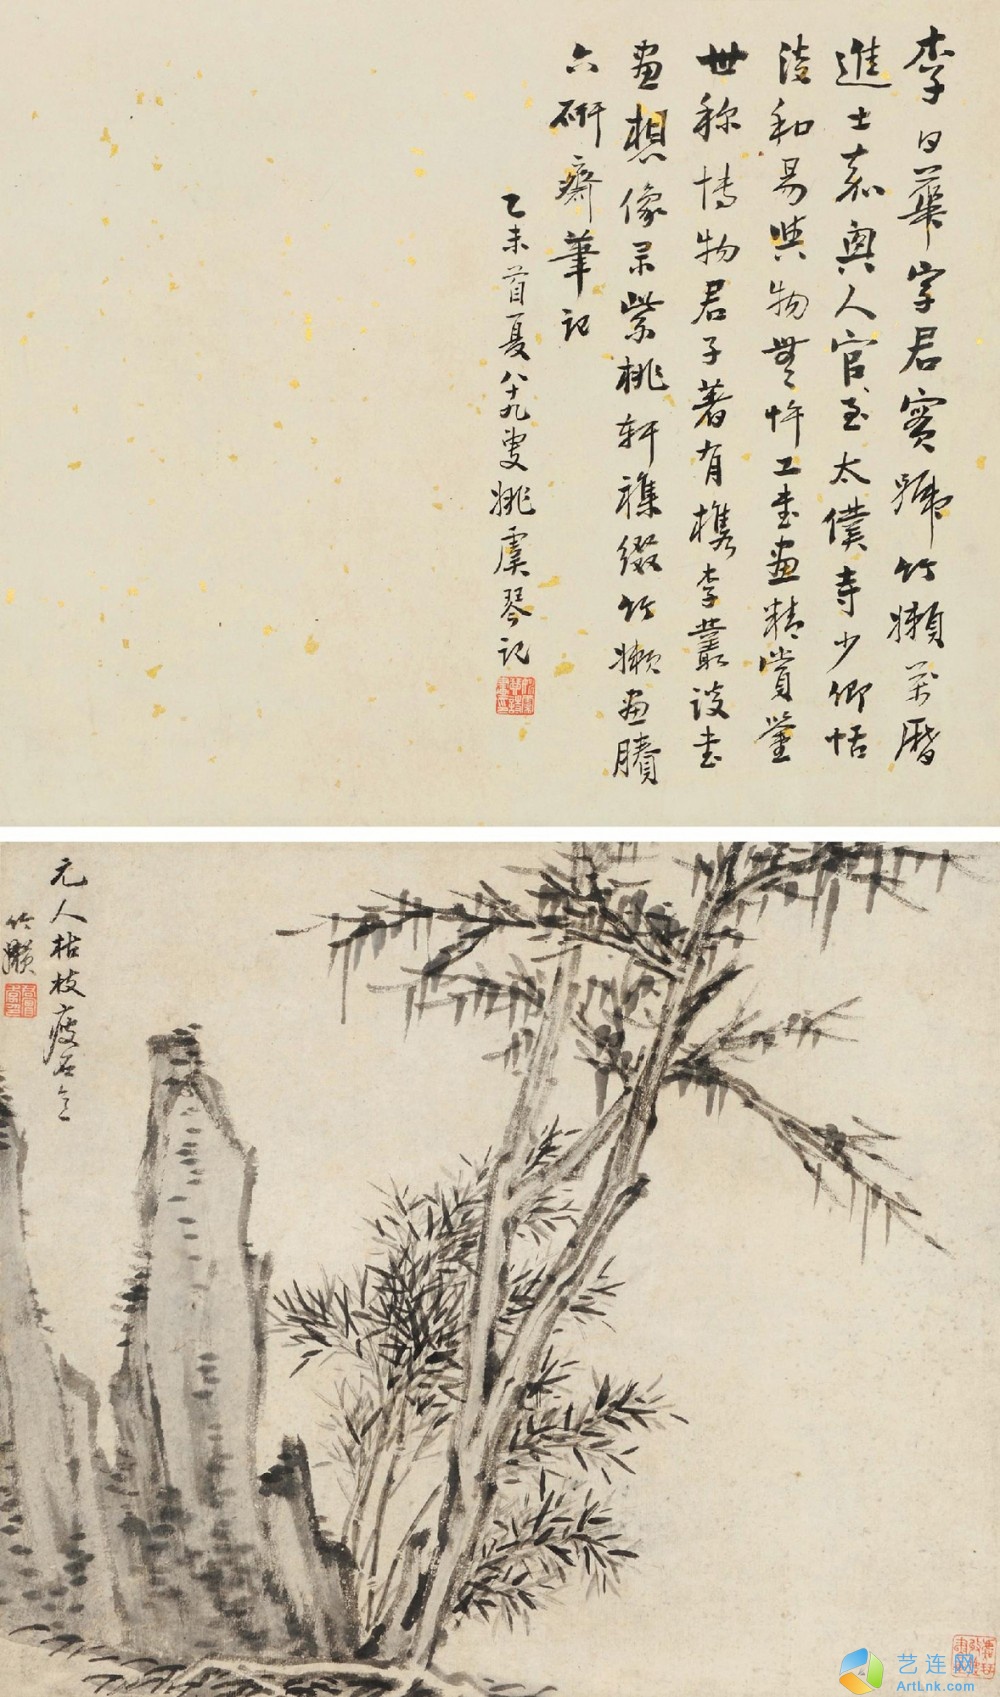 李日華字君實號竹嬾萬曆
進士嘉興人官至太僕寺少卿恬
淡和易與物無忤工書畫精賞鑒
世稱博物君子著有檇李叢談書
畫想像录紫桃軒襍綴竹嬾畫賸
六硏齋筆記
乙未首夏八十九叟姚虞琴記
元人枯枝瘦石意
竹嬾
艺连网
ArtLnk.com